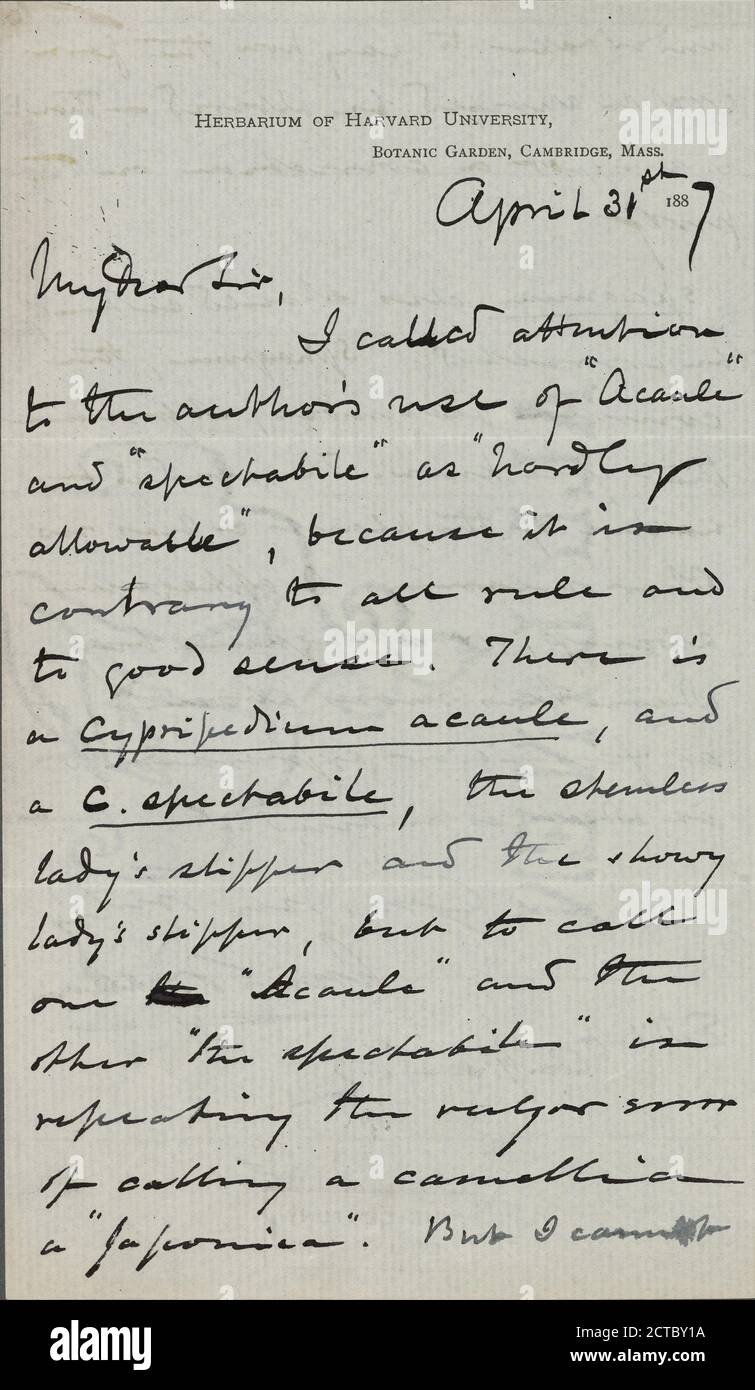 HERBARIUM OF HARVARD UNIVERSITY,
BOTANIC GARDEN, CAMBRIDGE, MASS.
April 31st 1887
My Dear Sir,
I called attention
to the author's use of "Acaule"
and "spectabile" as "hardly
allowable", because it is
contrary to all rule and
to good sense. There is
a Cypripedium acaule, and
a C. spectabile, the stemless
lady's slipper and the showy
lady's slipper, but to call
one "Acaule" and the
other "the spectabile" is
repeating the vulgar error
of calling a camellia
a "Japonica". But I cannot
alamy
Image ID: 2CTBY1A
www.alamy.com